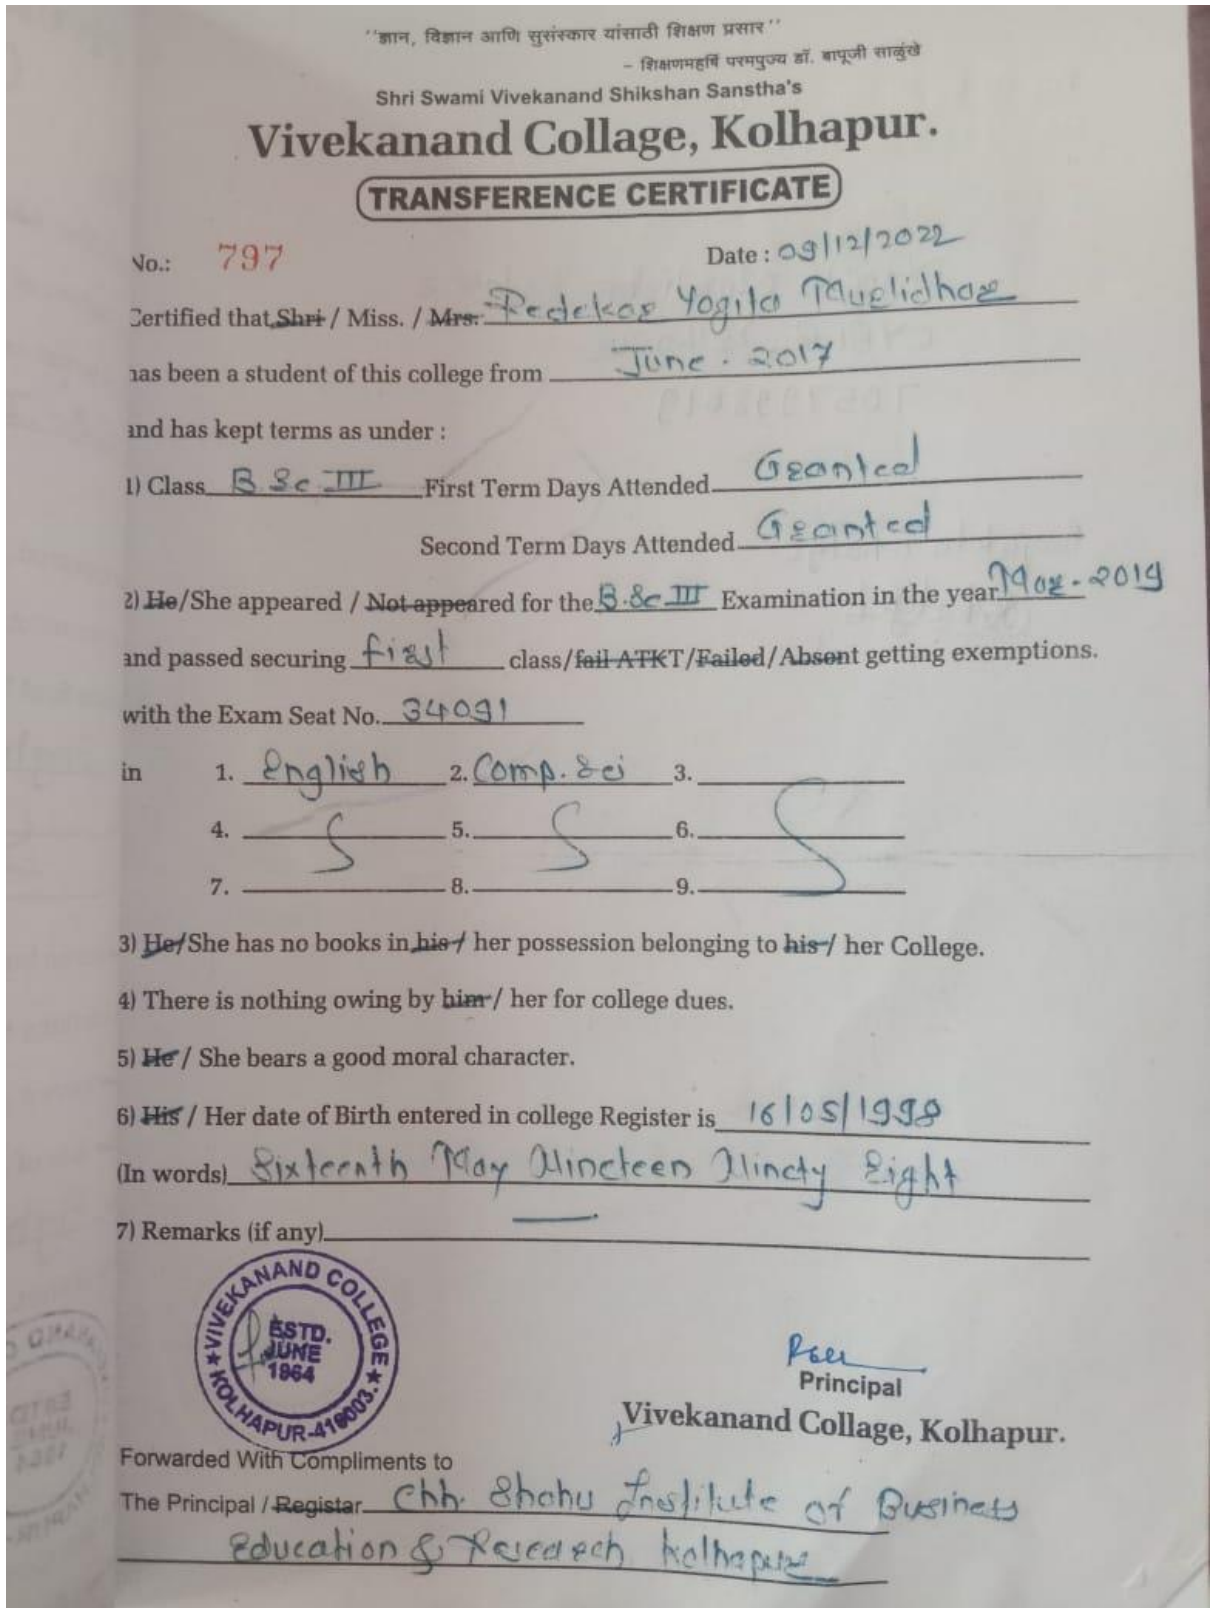 ''ज्ञान, विज्ञान आणि सुसंस्कार यांसाठी शिक्षण प्रसार''
- शिक्षणमहर्षि परमपुज्य डॉ. बापूजी साळुंखे
Shri Swami Vivekanand Shikshan Sanstha's
Vivekanand Collage, Kolhapur.
TRANSFERENCE CERTIFICATE
No.: 797 Date : 09/12/2022
Certified that Shri / Miss. / Mrs. Redekar Yogita Murlidhar
has been a student of this college from June - 2017
and has kept terms as under :
1) Class B.Sc III First Term Days Attended Granted
Second Term Days Attended Granted
2) He/She appeared / Not appeared for the B.Sc III Examination in the year Mar - 2019
and passed securing first class/fail ATKT/Failed/Absent getting exemptions.
with the Exam Seat No. 34091
in 1. English 2. Comp. Sci 3.
4. 5. 6.
7. 8. 9.
3) He/She has no books in his / her possession belonging to his / her College.
4) There is nothing owing by him / her for college dues.
5) He / She bears a good moral character.
6) His / Her date of Birth entered in college Register is 16/05/1998
(In words) Sixteenth May Nineteen Ninety Eight
7) Remarks (if any)
VIVEKANAND COLLEGE
ESTD.
JUNE
1964
KOLHAPUR-416003.
Principal
Vivekanand Collage, Kolhapur.
Forwarded With Compliments to
The Principal / Registar Chh. Shahu Institute of Business
Education & Research, Kolhapur